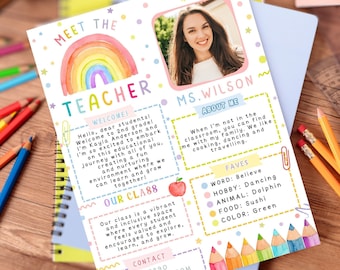 MEET THE
TEACHER
MS. WILSON
WELCOME!
Hello, dear students!
Welcome to 2nd grade!
I'm Kayla Anderson and
I'm excited to embark
on this educational
journey with you. I am
creating a fun
and nurturing
environment where we
can learn and grow
together!
ABOUT ME
When I'm not in the
classroom, you can find
me with my family. We like
cooking, crafting and
travelling.
OUR CLASS
Our class is a vibrant
and inclusive space
where every student
feels valued and
encouraged to explore,
learn, and grow.
FAVES
WORD: Believe
HOBBY: Dancing
ANIMAL: Dolphin
FOOD: Sushi
COLOR: Green
CONTACT